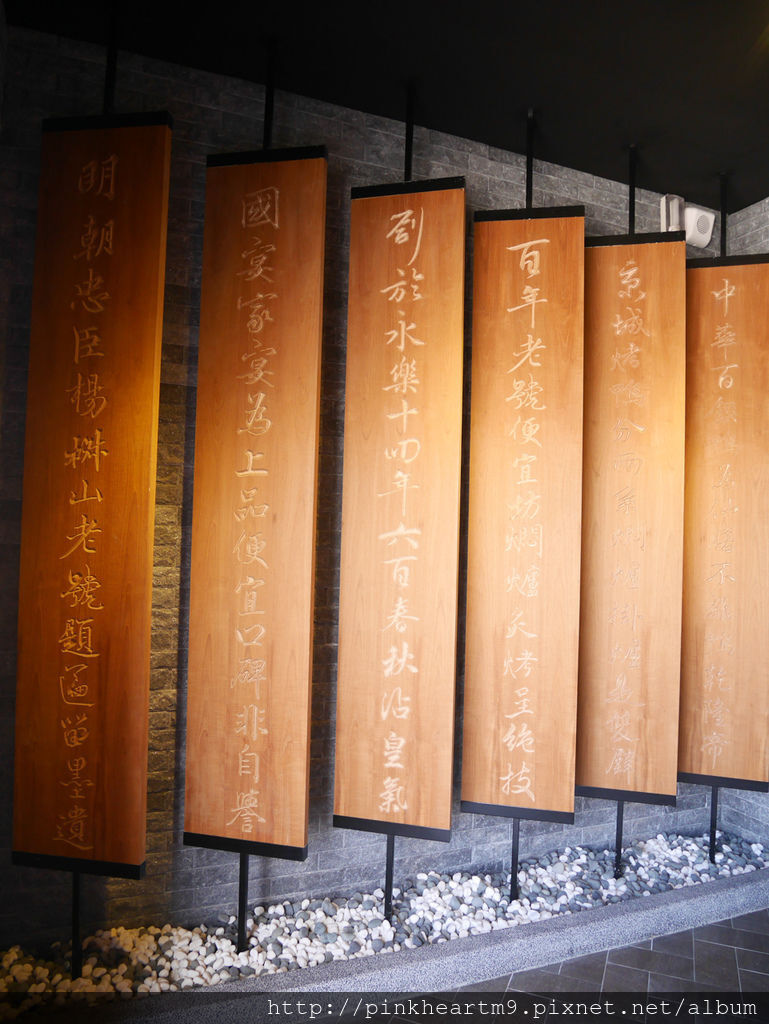 中華百不乾隆帝
京城烤鴨分兩燜爐掛爐雙
百年老號便宜坊燜爐炙烤呈絕技
創於永樂十四年六百春秋沾皇氣
國宴家宴為上品便宜口碑非自譽
明朝忠臣楊椒山老號題匾留墨遺
http://pinkheartm9.pixnet.net/album